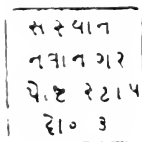 સંસ્થાન
નવાનગર
પોષ્ટ સ્ટાંપ
દો૦ ૩